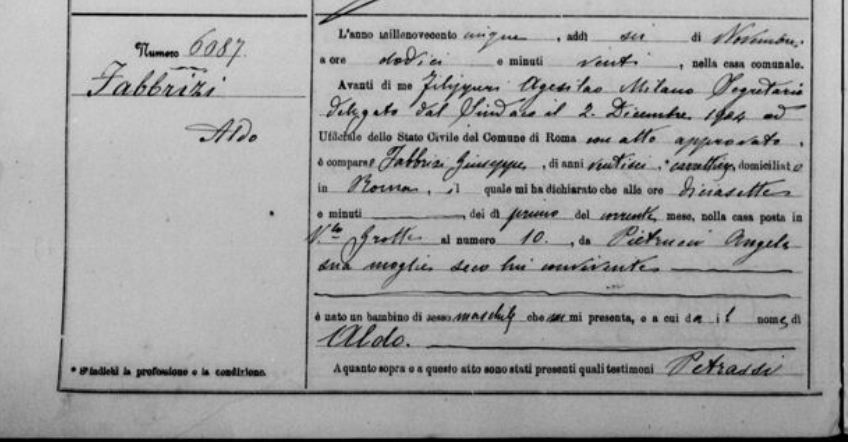 Numero 6087.
Fabbrizi
Aldo
* S'indichi la professione o la condizione.
L'anno millenovecento cinque, addì sei di Novembre,
a ore dodici e minuti venti, nella casa comunale.
Avanti di me Filipperi Agesilao Milano Segretario
delegato dal Sindaco il 2. Dicembre 1904 ed
Ufficiale dello Stato Civile del Comune di Roma con atto approvato,
è comparso Fabbrizi Giuseppe, di anni ventisei, * domiciliato
in Roma, il quale mi ha dichiarato che alle ore diciasette
e minuti , del dì primo del corrente mese, nella casa posta in
V.lo Grotte al numero 10., da Pietrucci Angela
sua moglie seco lui convivente
è nato un bambino di sesso maschile che mi presenta, e a cui dà il nome di
Aldo.
A quanto sopra e a questo atto sono stati presenti quali testimoni Petrassi